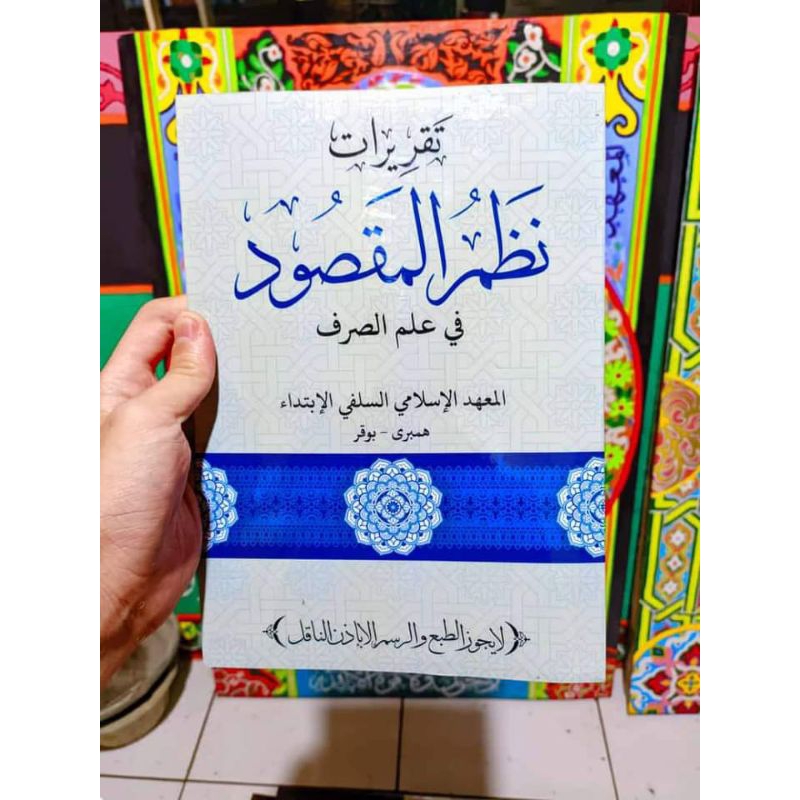 تقريرات
نَظْمُ الْمَقْصُود
في علم الصرف
المعهد الإسلامي السلفي الإبتداء
همبرى - بوقر
لايجوز الطبع والرسم إلا باذن الناقل